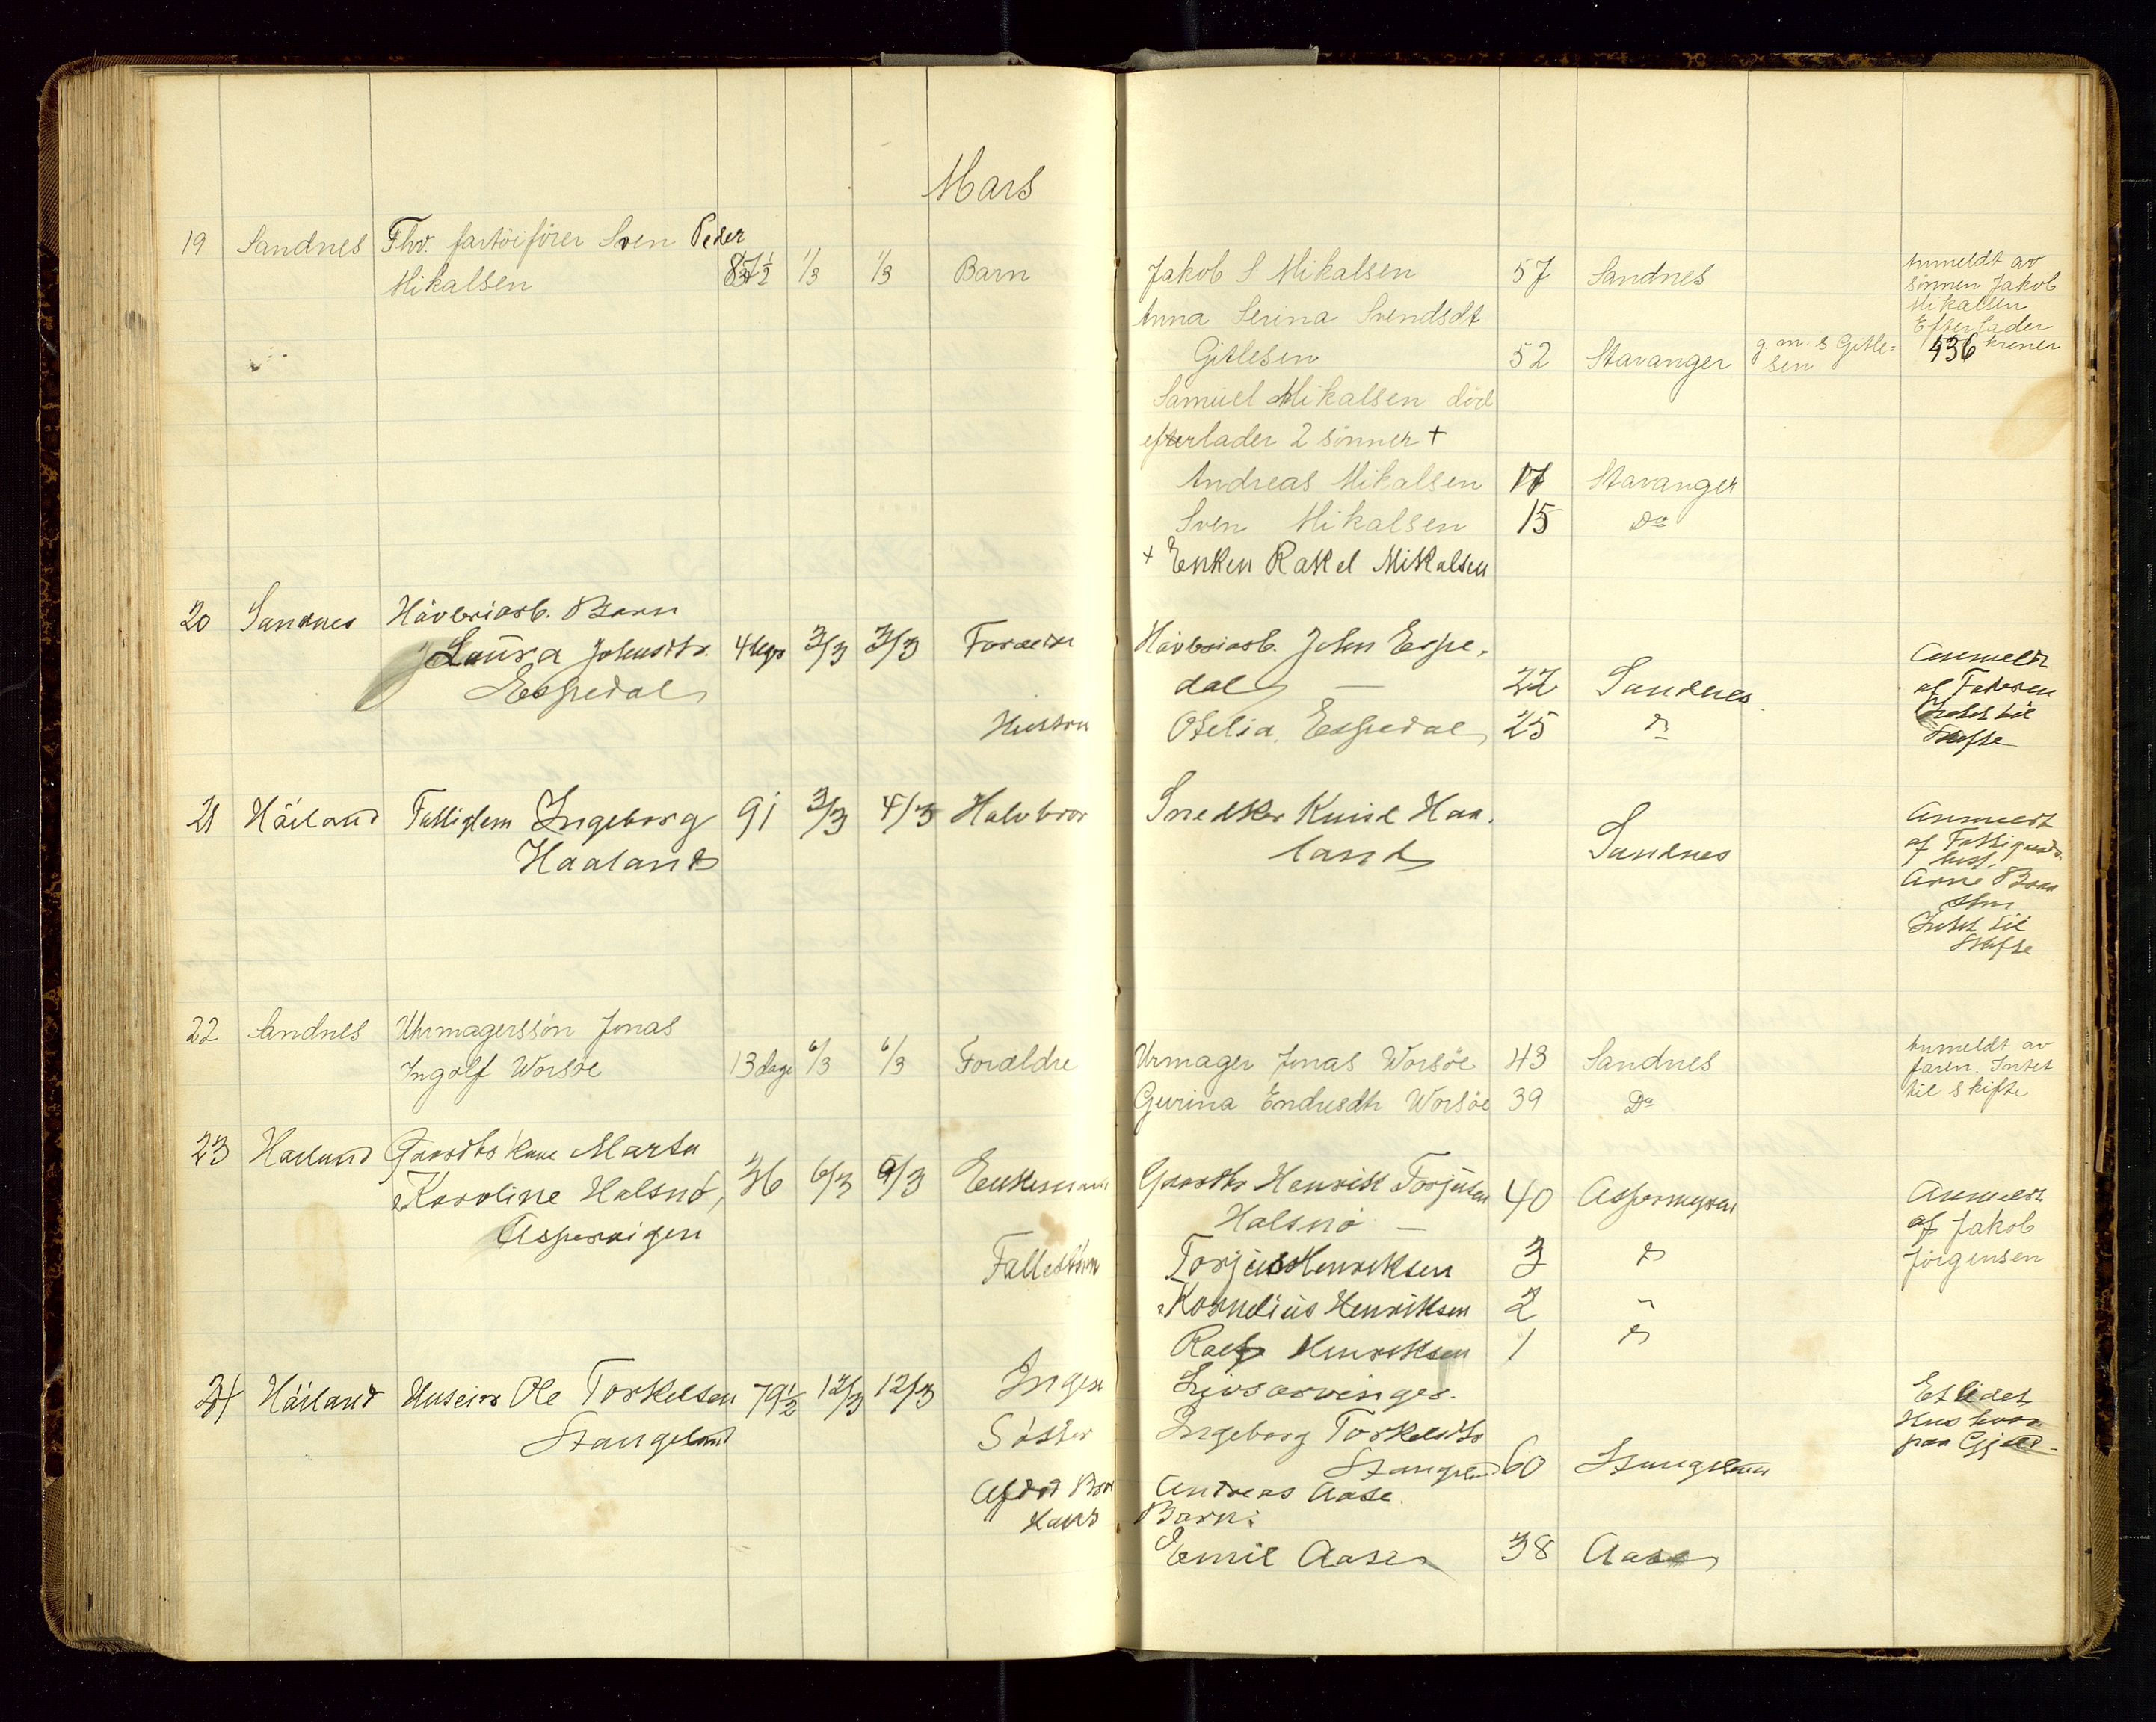 Mars
19 Sandnes Thv. fartöiförer Sven Peder
Mikalsen 87½ 1/3 1/3 Barn
Jakob S Mikalsen 57 Sandnes
Anna Serina Svendsdt
Gitlesen 52 Stavanger g. m. S Gitle=
sen
Samuel Mikalsen död
efterlader 2 sönner +
Andreas Mikalsen 17 Stavanger
Sven Mikalsen 15 Do
+ Enken Rakel Mikalsen
Anmeldt av
sönnen Jakob
Mikalsen
Efterlader
436 kroner
20 Sandnes Hövleriarb. Barn
Laura Johnsdtr. 4 3/3 3/3 Forældre
Espedal
Hustru
Hövleriarb. John Espe-
dal 22 Sandnes
Otelia Espedal 25 Do
Anmeldt
af Faderen
Intet til
Skifte
21 Höiland Fattiglem Ingeborg 91 3/3 4/3 Halvbror
Haaland
Snedker Knud Haa-
land Sandnes
Anmeldt
af Fattigv
Arne
Intet til
Skifte
22 Sandnes Uhrmagerssön Jonas
Ingolf Worsöe 13 dage 6/3 6/3 Forældre
Urmager Jonas Worsöe 43 Sandnes
Gurina Endresdtr Worsöe 39 Do
Anmeldt av
faren. Intet
til skifte
23 Höiland Gaardbr kone Marta
Karoline Halsnö, 36 6/3 9/3 Enkemand
Aspervigen
Fællesbörn
Gaardbr Henrik Torjusen 40
Halsnö
Torjus Henriksen 3 Do
Kornelius Henriksen 2 "
Henriksen 1 Do
Anmeldt
af Jakob
Jörgensen
24 Höiland Huseier Ole Torkelsen 79½ 12/3 12/3 Ingen
Stangeland Söster
Afdöd Bror
Hans
Livsarvinger.
Ingeborg Torkelsdtr
Stangeland 60 Stangeland
Andreas Aase.
Barn:
Emil Aase 38 Aase
Et lidet
Hus hvor
paa Gjæld